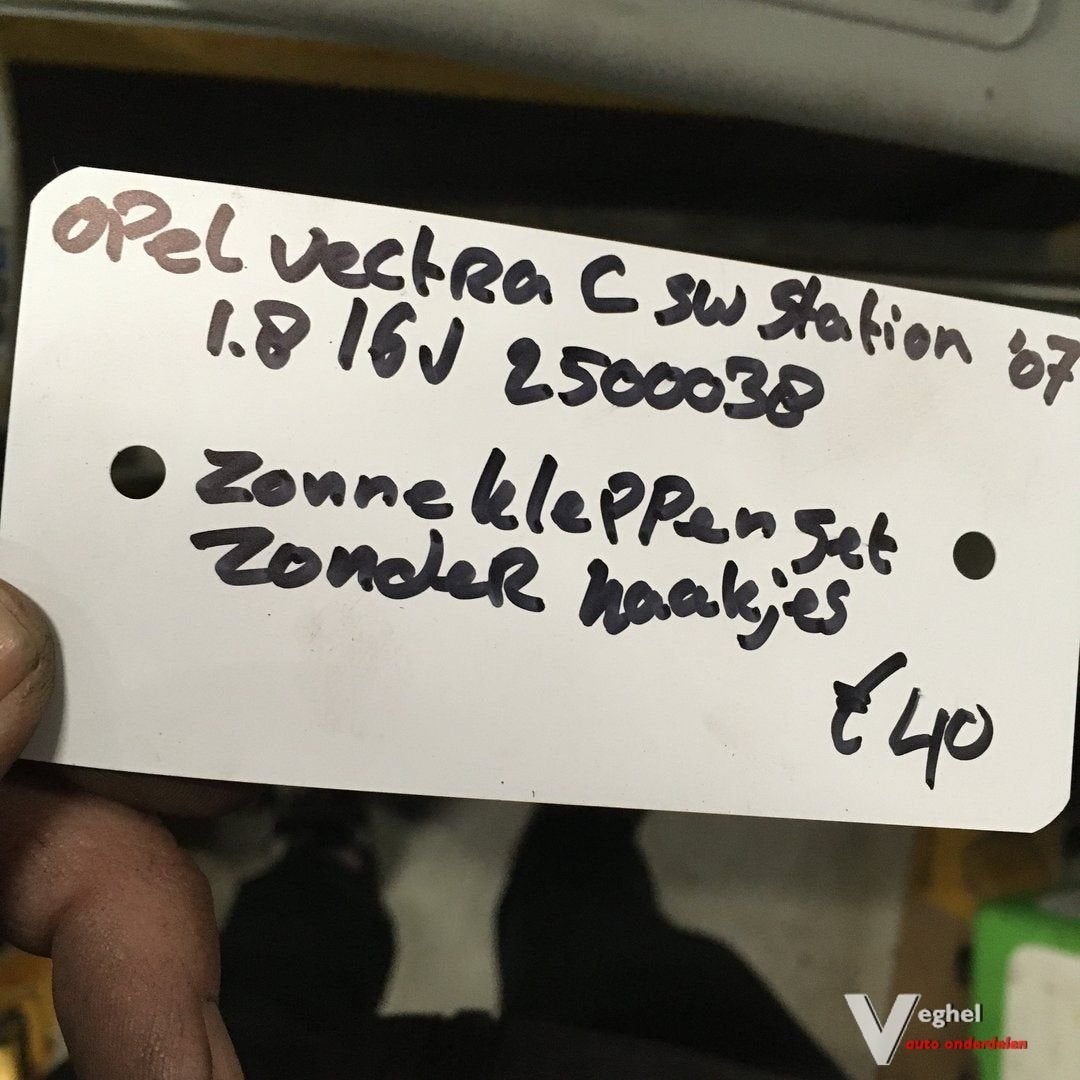 Opel Vectra C SW Station '07
1.8 16V 2500038
Zonnekleppen set
Zonder haakjes
€40
Veghel
auto onderdelen